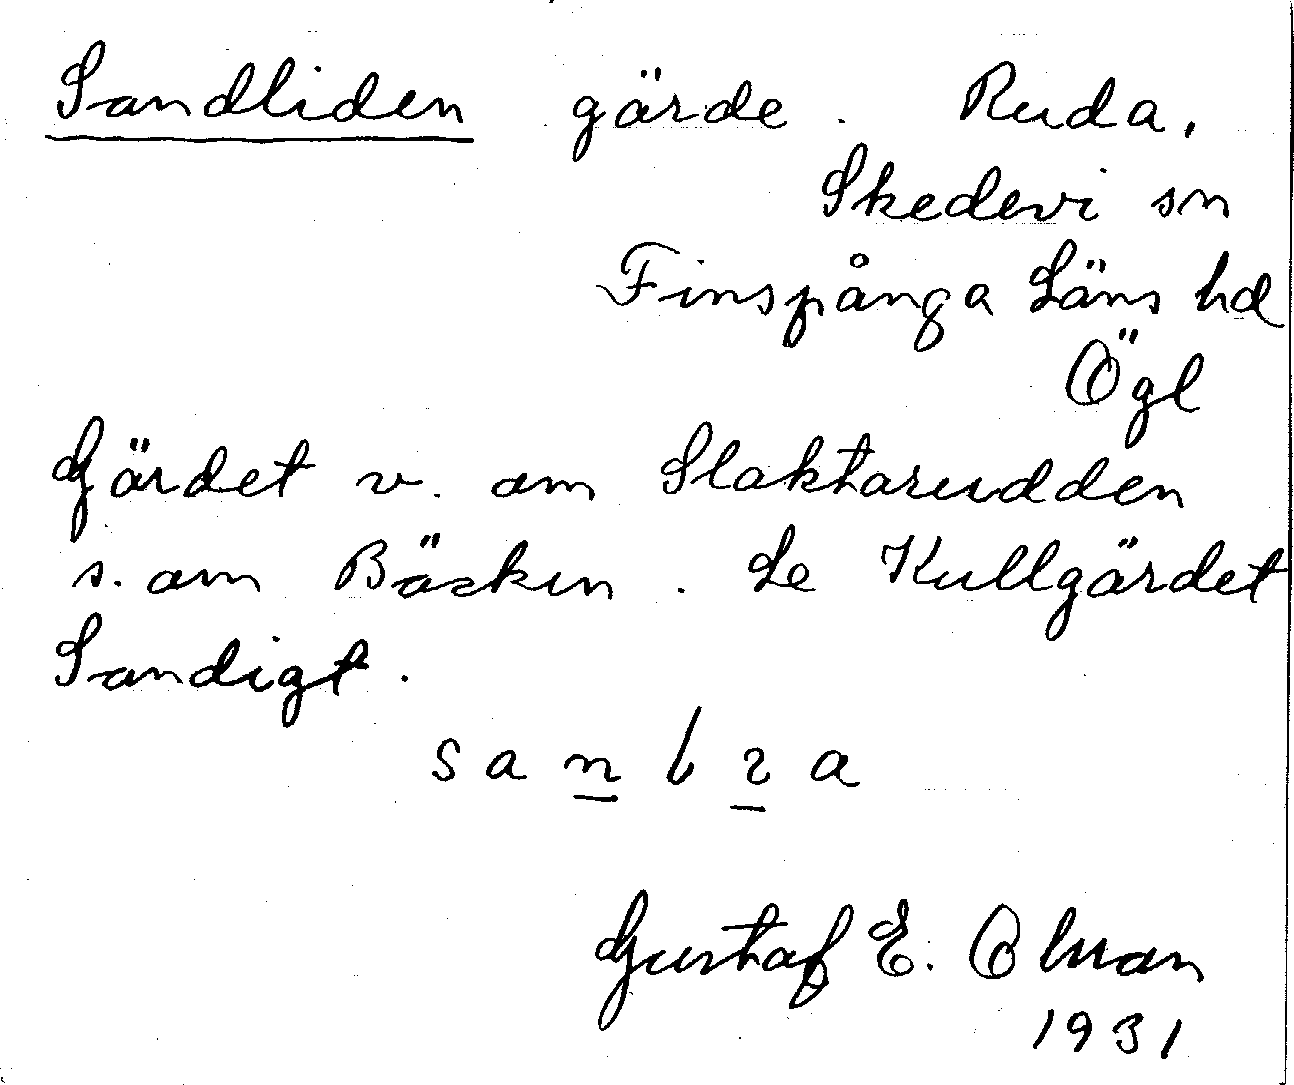 Sandliden gärde. Ruda,
Skedevi sn
Finspånga Läns hd
Ögl
Gärdet v. om Slaktarudden
s. om Bäcken. Se Kullgärdet
Sandigt.
Gustaf E.
1931